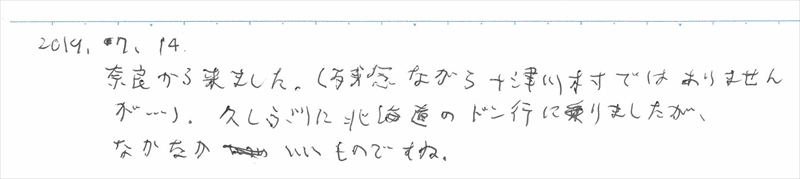 2019. 7. 14.
奈良から来ました。(残念ながら十津川村ではありません
が…)。久しぶりに北海道のドン行に乗りましたが、
なかなか いいものですね。